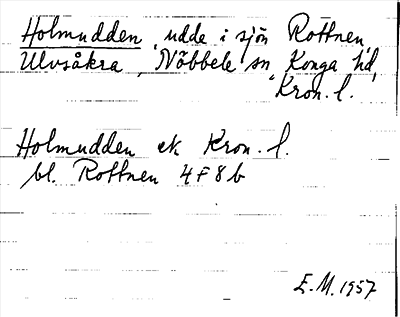 Holmudden, udde i sjön Rottnen,
Ulvsåkra, Nöbbele sn, Konga hd,
Kron. l.
Holmudden ek Kron. l.
bl. Rottnen 4F8b
E.M. 1957